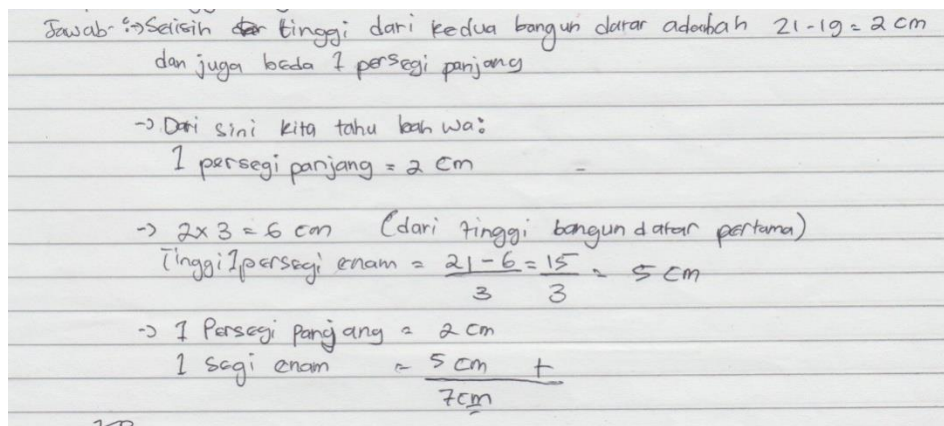 Jawab :→ Selisih tinggi dari kedua bangun datar adalah 21-19 = 2 cm
dan juga beda 1 persegi panjang
→ Dari sini kita tahu bahwa:
1 persegi panjang = 2 cm
→ 2x3 = 6 cm (dari tinggi bangun datar pertama)
Tinggi 1 persegi enam = 21-6 / 3 = 15 / 3 = 5 cm
→ 1 Persegi panjang = 2 cm
1 segi enam = 5 cm +
7cm